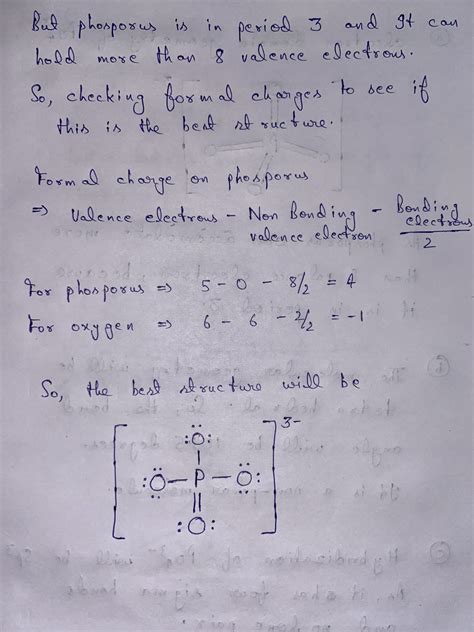 But phosporus is in period 3 and It can
hold more than 8 valence electrons.
So, checking formal charges to see if
this is the best structure.
Formal charge on phosporus
⇒ Valence electrons - Non Bonding valence electron - Bonding electrons / 2
For phosporus ⇒ 5 - 0 - 8/2 = 4
For oxygen ⇒ 6 - 6 - 2/2 = -1
So, the best structure will be
3-
:O:
:O - P - O:
:O: